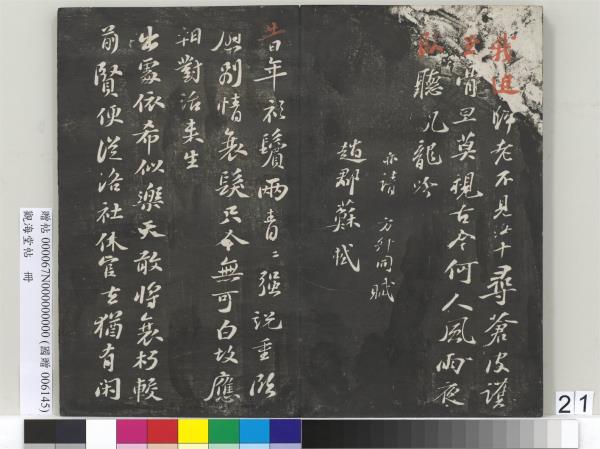 我 師老不見汝十尋蒼皮護
玉骨旦莫視古今何人風雨夜
臥聽飢龍吟
亦請 方外同賦
趙郡蘇軾
昔年衫鬢兩青〻強說重臨
慰別情衰髮只今無可白故應
相對話來生
出處依希似樂天敢將衰朽較
前賢便從洛社休官去猶有閑
贈帖 000067N000000000 (國贈 006145)
觀海堂帖 冊
21